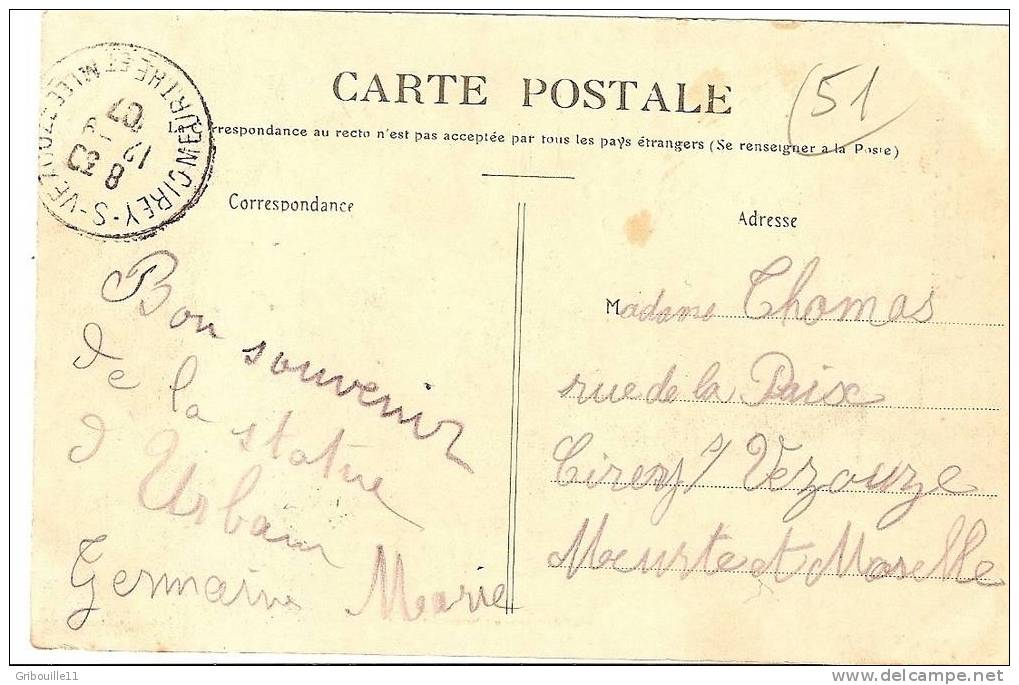 CARTE POSTALE
51
La Correspondance au recto n'est pas acceptée par tous les pays étrangers (Se renseigner a la Poste)
CIREY-S-VEZOUZE MEURTHE ET M LLE
8 30
12 - 9
07
Correspondance
Bon souvenir
de la statue
d'Urbain
Germaine Marie
Adresse
Madame Thomas
rue de la Paix
Cirey s/ Vezouze
Meurte et Moselle
Gribouille11
www.delcampe.net